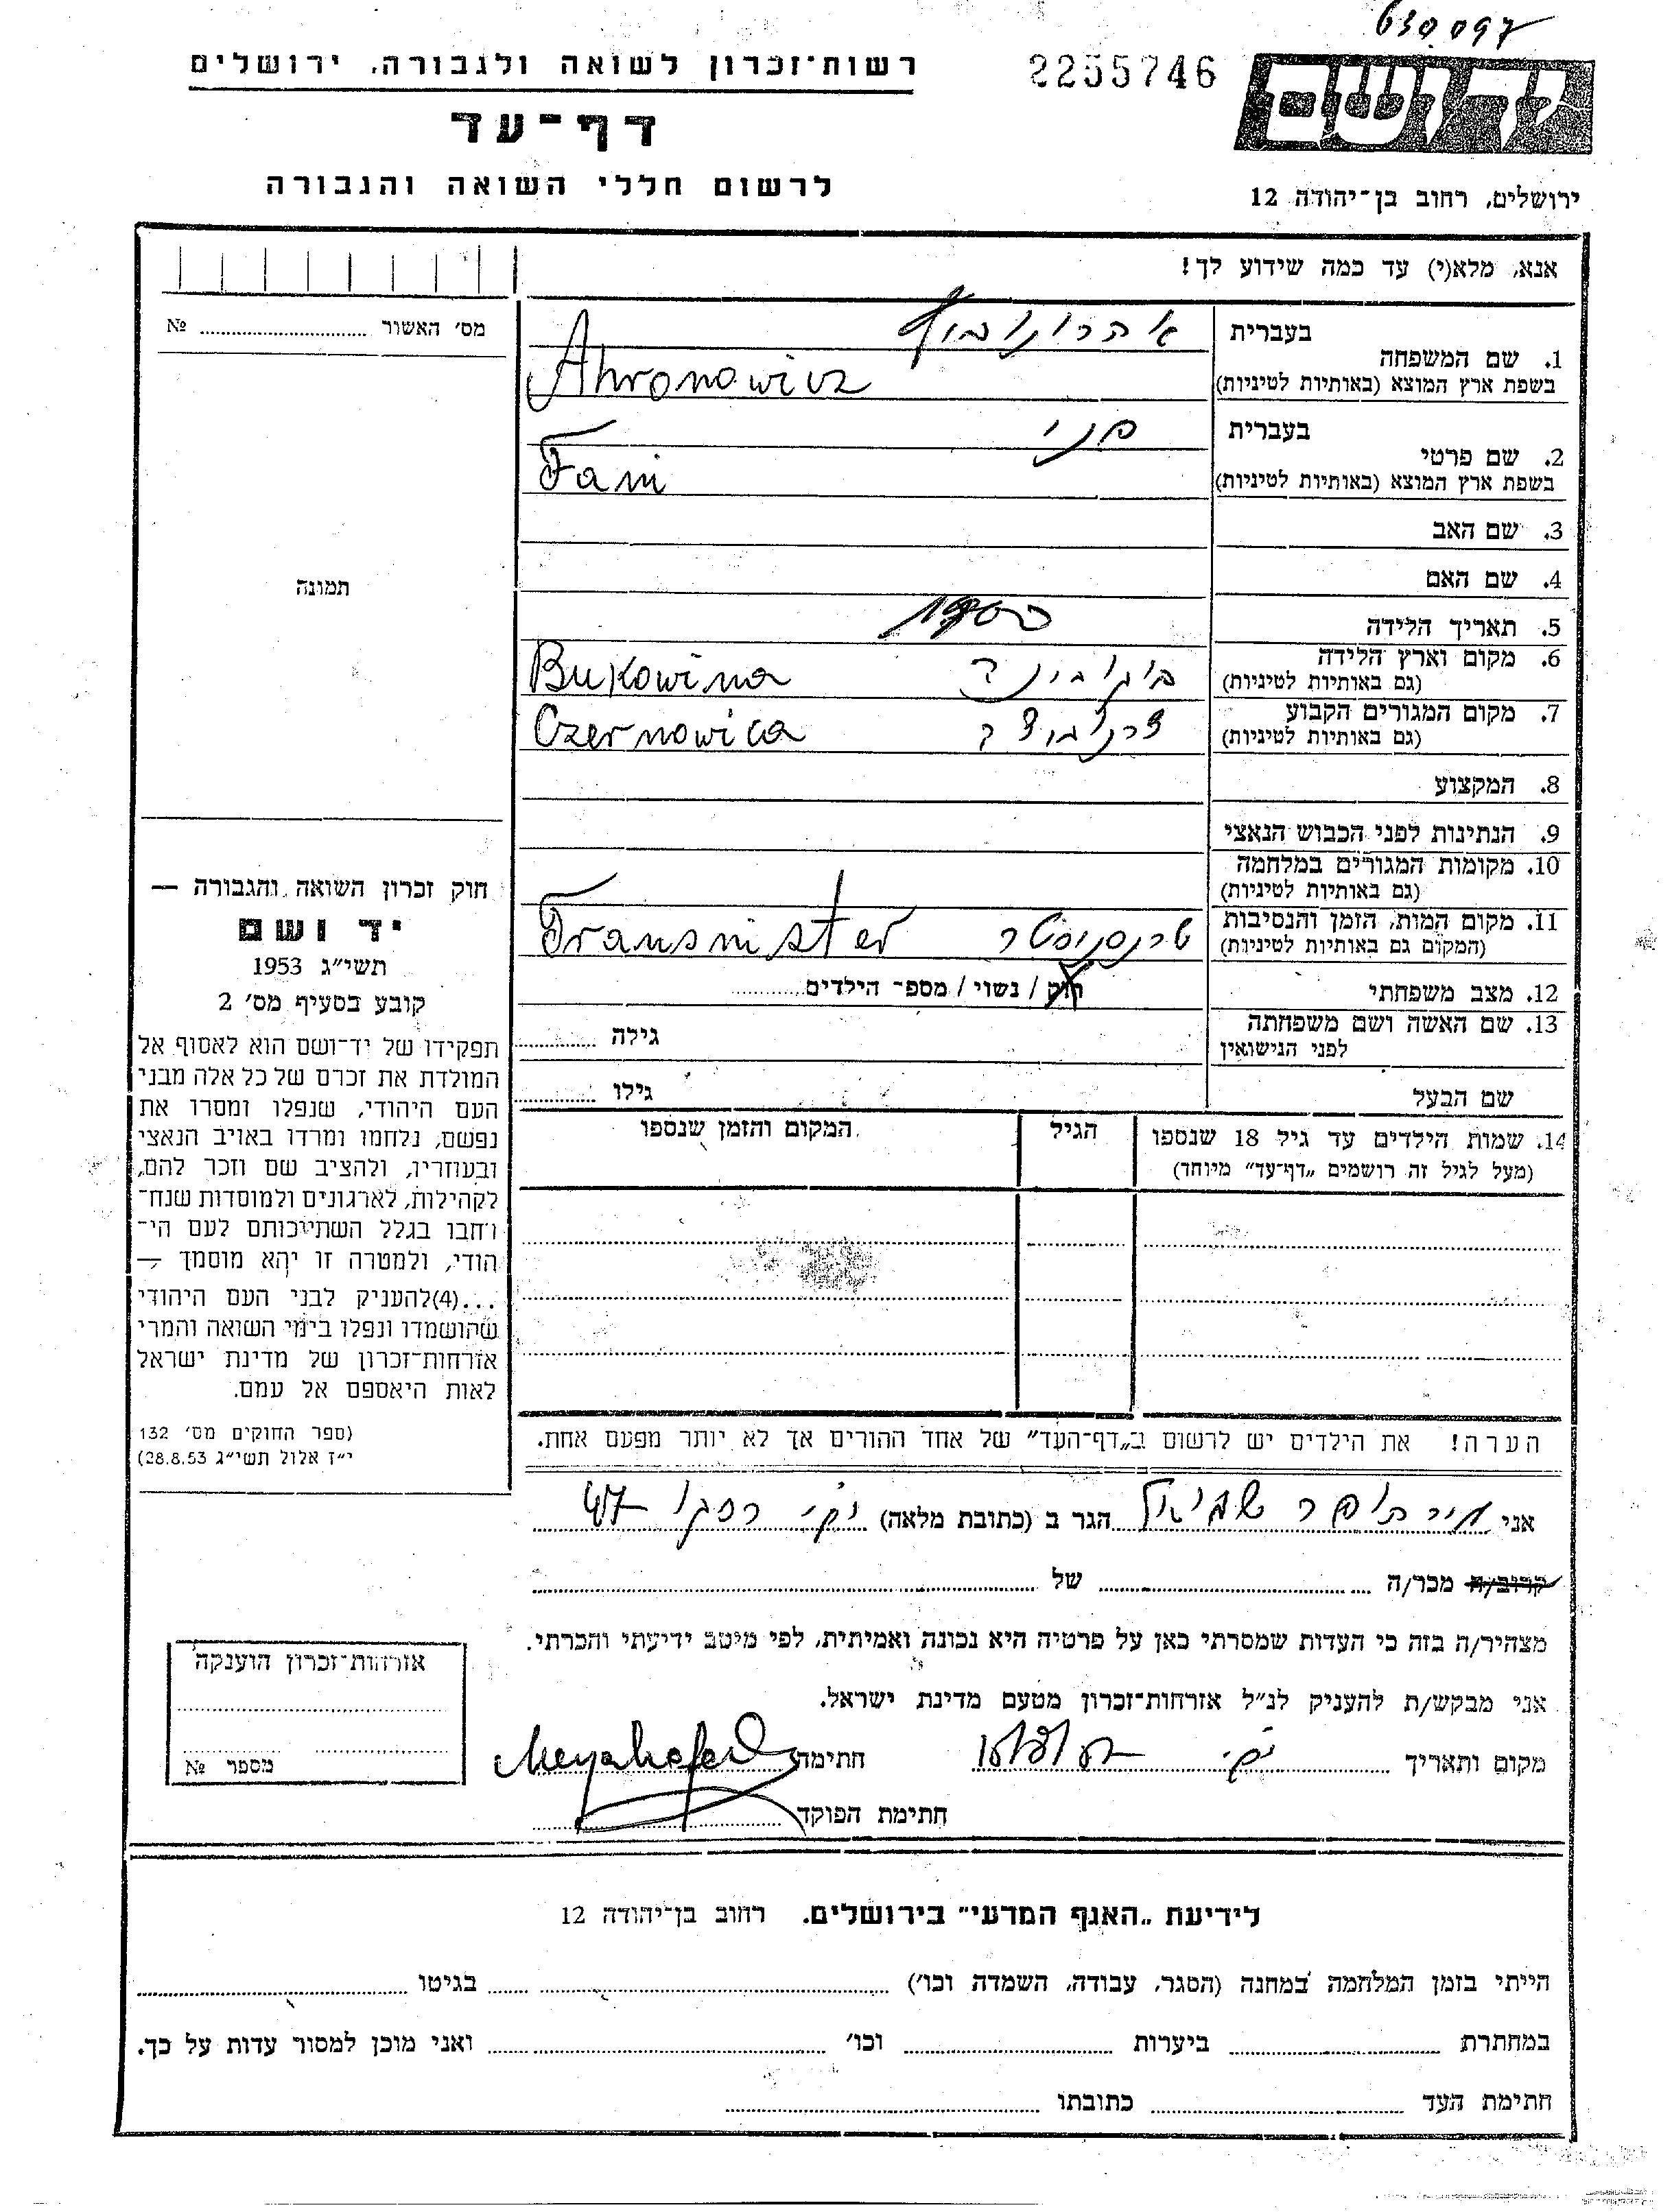 630097
רשות־זכרון לשואה ולגבורה, ירושלים
2255746
יד ושם
דף־עד
לרשום חללי השואה והגבורה
ירושלים, רחוב בן־יהודה 12
אנא, מלא(י) עד כמה שידוע לך!
מס׳ האשור № 
תמונה
1. שם המשפחה
בעברית אהרונוביץ
בשפת ארץ המוצא (באותיות לטיניות) Ahronowicz
2. שם פרטי
בעברית פני
בשפת ארץ המוצא (באותיות לטיניות) Fani
3. שם האב
4. שם האם
5. תאריך הלידה
6. מקום וארץ הלידה
(גם באותיות לטיניות) בוקובינה Bukowina
7. מקום המגורים הקבוע
(גם באותיות לטיניות) צרנוביצה Czernowica
8. המקצוע
9. הנתינות לפני הכבוש הנאצי
10. מקומות המגורים במלחמה
(גם באותיות לטיניות)
11. מקום המות, הזמן והנסיבות
(המקום גם באותיות לטיניות) טרנסניסטר Transnister
12. מצב משפחתי רוק / נשוי / מספר הילדים
13. שם האשה ושם משפחתה
לפני הנישואין גילה
שם הבעל גילו
14. שמות הילדים עד גיל 18 שנספו הגיל המקום והזמן שנספו
(מעל לגיל זה רושמים „דף־עד” מיוחד)
הערה! את הילדים יש לרשום ב„דף־העד” של אחד ההורים אך לא יותר מפעם אחת.
חוק זכרון השואה והגבורה —
יד ושם
תשי״ג 1953
קובע בסעיף מס׳ 2
תפקידו של יד־ושם הוא לאסוף אל
המולדת את זכרם של כל אלה מבני
העם היהודי, שנפלו ומסרו את
נפשם, נלחמו ומרדו באויב הנאצי
ובעוזריו, ולהציב שם וזכר להם,
לקהילות, לארגונים ולמוסדות שנח־
רחבו בגלל השתייכותם לעם הי־
הודי, ולמטרה זו יהא מוסמך —
...(4)להעניק לבני העם היהודי
שהושמדו ונפלו בימי השואה והמרי
אזרחות־זכרון של מדינת ישראל
לאות היאספם אל עמם.
(ספר החוקים מס׳ 132
י״ז אלול תשי״ג 28.8.53)
אני מיירהופר שמואל הגר ב (כתובת מלאה) 47
קרוב/ה מכר/ה של
מצהיר/ה בזה כי העדות שמסרתי כאן על פרטיה היא נכונה ואמיתית, לפי מיטב ידיעתי והכרתי.
אני מבקש/ת להעניק לנ״ל אזרחות־זכרון מטעם מדינת ישראל.
מקום ותאריך חתימה
חתימת הפוקד
אזרחות־זכרון הוענקה
מספר №
לידיעת „האגף המדעי” בירושלים. רחוב בן־יהודה 12
הייתי בזמן המלחמה במחנה (הסגר, עבודה, השמדה וכו׳) בגיטו
במחתרת ביערות וכו׳ ואני מוכן למסור עדות על כך.
חתימת העד כתובתו